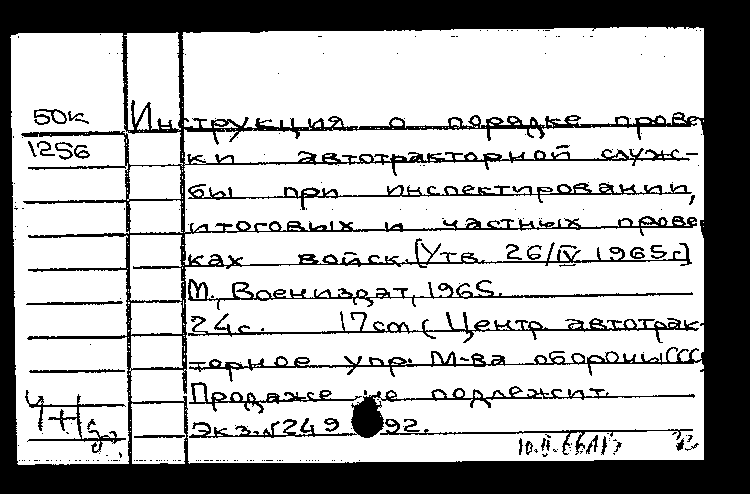 50к
1256
Инструкция о порядке прове
ки автотракторной служ-
бы при инспектировании,
итоговых и частных прове
ках войск. [Утв. 26/IV 1965г.]
М., Воениздат, 1965.
24с. 17cm (Центр. автотрак-
торное упр. М-ва обороны СССР
Продаже не подлежит.
Экз. №249 92.